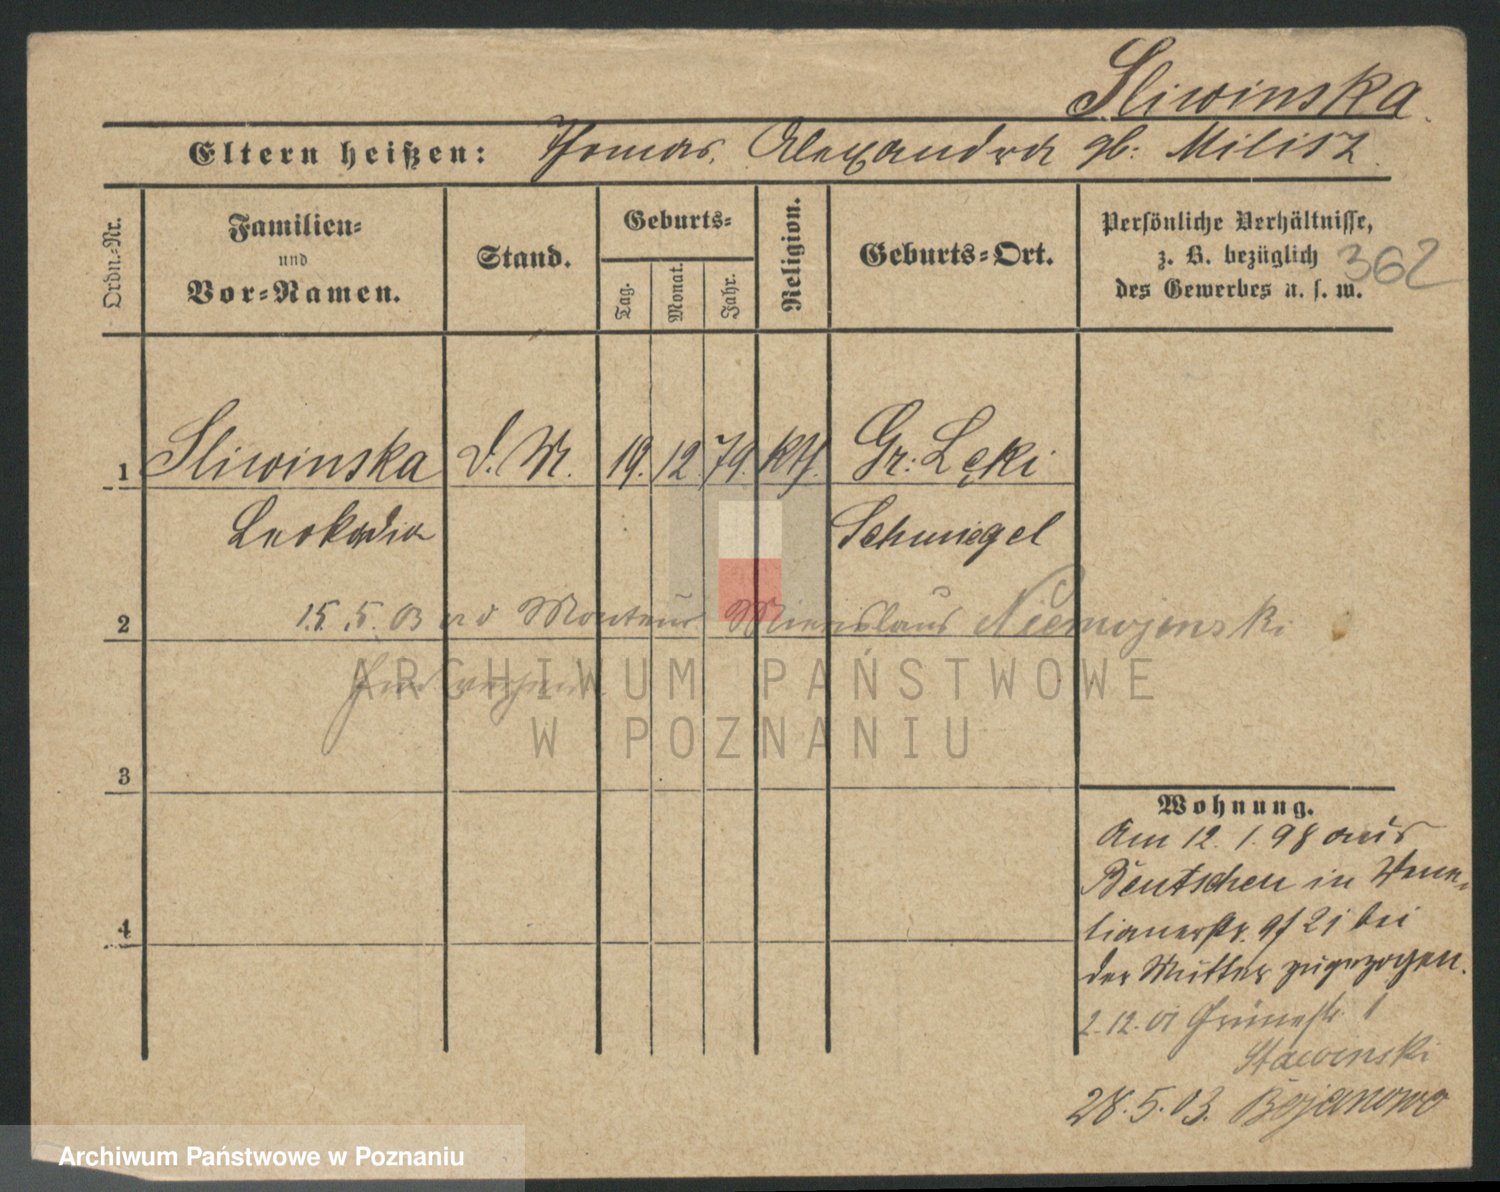 Sliwinska
Eltern heißen: Thomas, Alexandra gb: Milisz
Ordn.=Nr.
Familien=
und
Vor=Namen.
Stand.
Geburts=
Tag.
Monat.
Jahr.
Religion.
Geburts=Ort.
Persönliche Verhältnisse,
z. B. bezüglich
des Gewerbes u. s. w.
362
1 Sliwinska d. M. 19. 12 79. kth. Gr: Lęki
Leokadia Schmiegel
2 15. 5. 03 Monteur Niemojewski
3
4
Wohnung.
Am 12. 1. 98 aus
Bentschen in
21 bei
der Mutter zugezogen.
2.12. 01 Grünestr. 1
Stawinski
28. 5. 03. Bojanowo
ARCHIWUM PAŃSTWOWE
W POZNANIU
Archiwum Państwowe w Poznaniu